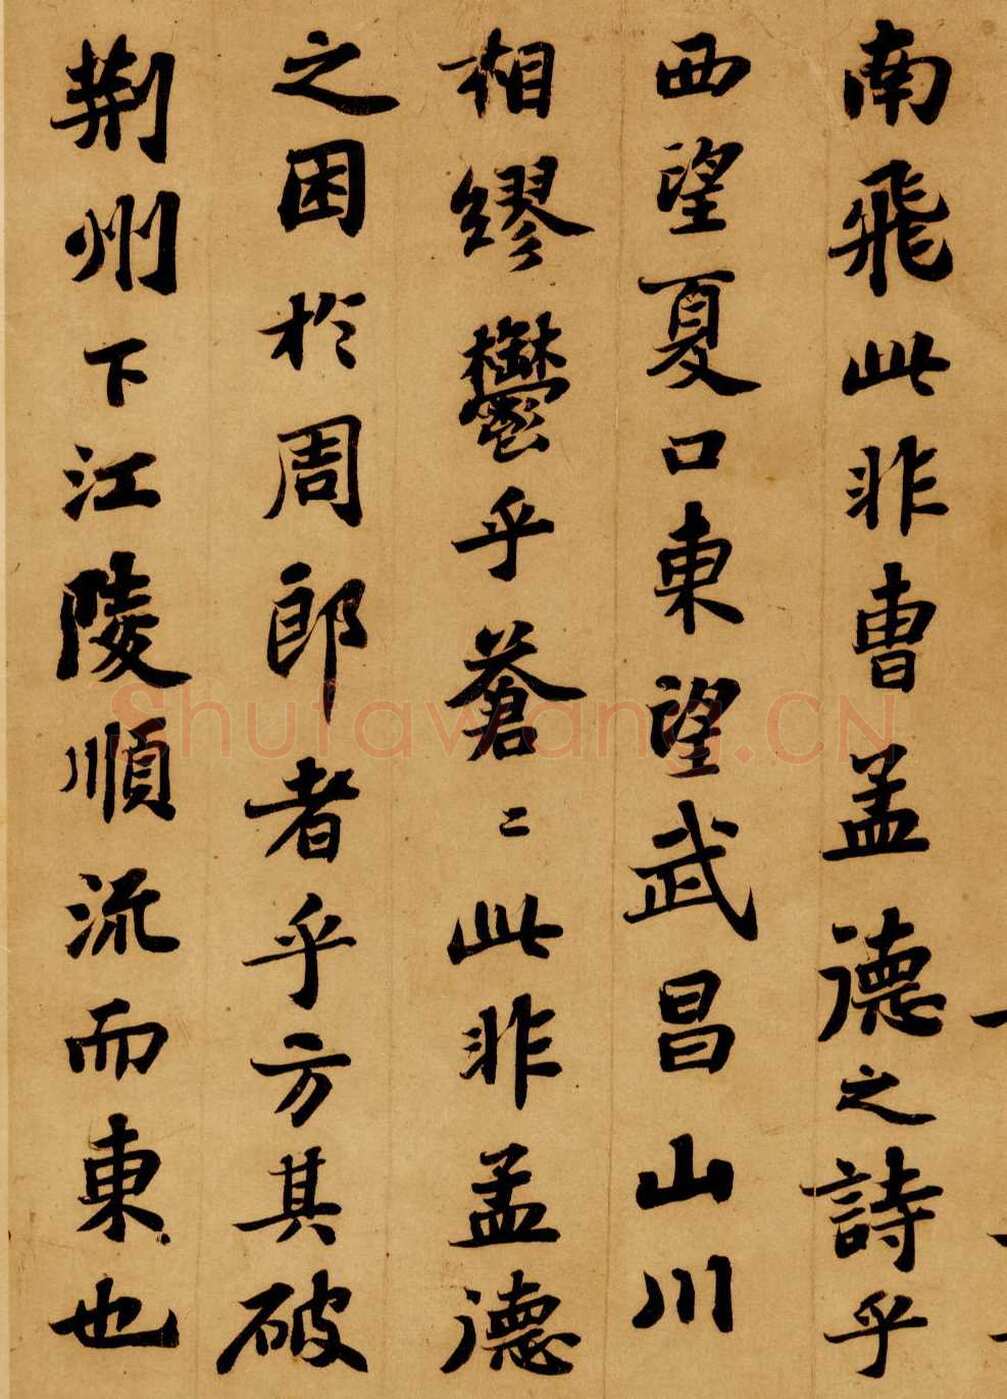 南飛此非曹孟德之詩乎
西望夏口東望武昌山川
相繆鬱乎蒼〻此非孟德
之困於周郎者乎方其破
荆州下江陵順流而東也
Shufawang.CN